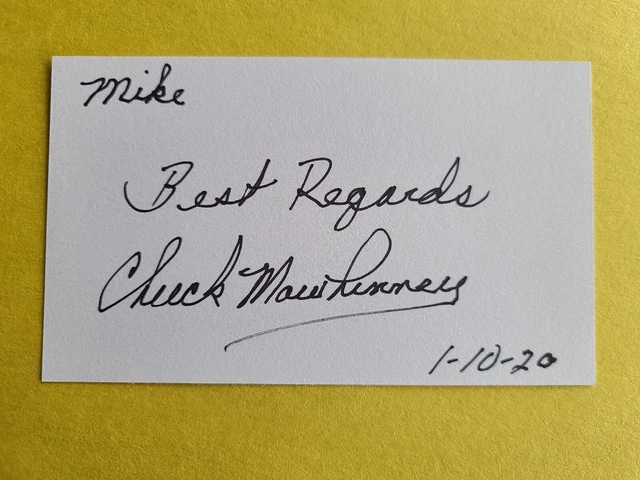 Mike
Best Regards
Chuck Mawhinney
1-10-20